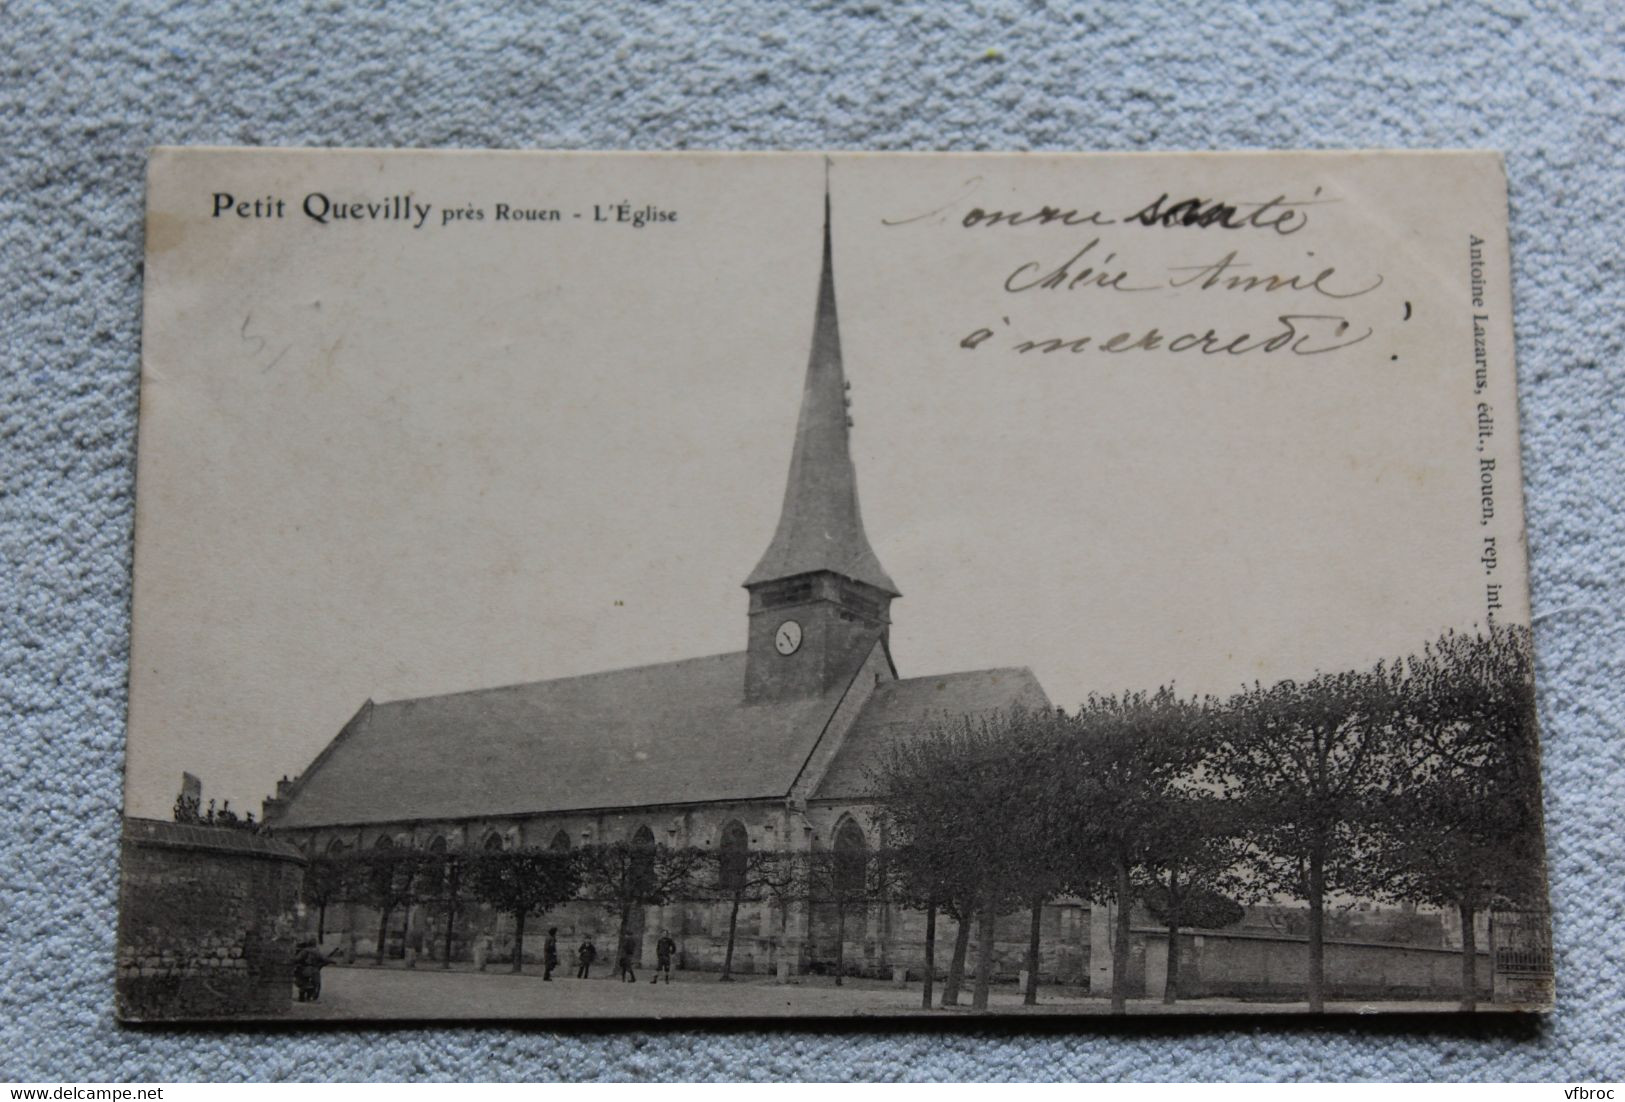 Petit Quevilly près Rouen - L'Église
Bonne santé
chère Amie
à mercredi !
Antoine Lazarus, édit., Rouen, rep. int.
delcampe.net
vfbroc